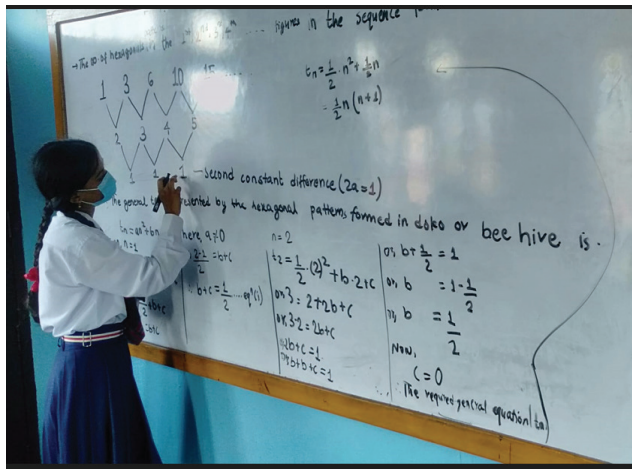 figures in the sequence
→ The no. of hexagons in the 1st 2nd 3rd
1 3 6 10 15 ......
2 3 4 5
1 1 1 - second constant difference (2a=1)
tn = 1/2 . n² + 1/2 n
= 1/2 n (n+1)
The general presented by the hexagonal patterns formed in doko or bee hive is.
tn = an² + bn here, a≠0
= b+c
∴ b+c = 1/2 ..... eqn (i)
n = 2
t2 = 1/2 . (2)² + b.2+c
or, 3 = 2+2b+c
or, 3-2 = 2b+c
2b+c = 1
b+b+c = 1
or, b + 1/2 = 1
or, b = 1 - 1/2
b = 1/2
Now,
c = 0
The required general equation (tn)